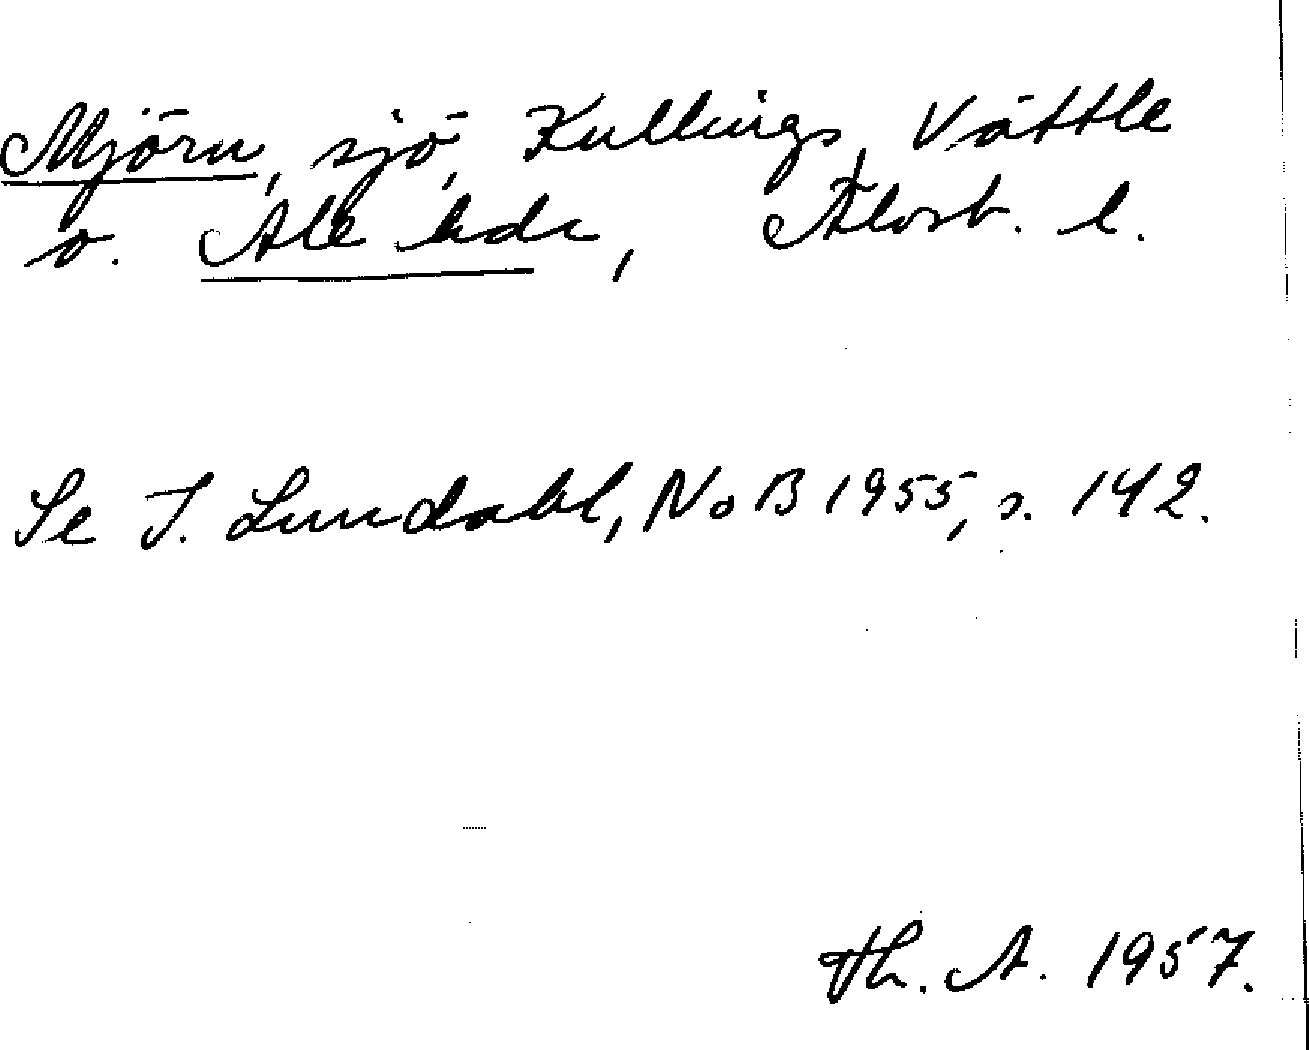 Mjörn, sjö, Kullings, Vättle
o. Ale hdr, Älvsb. l.
Se I. Lundahl, NoB 1955, s. 142.
Th. A. 1957.